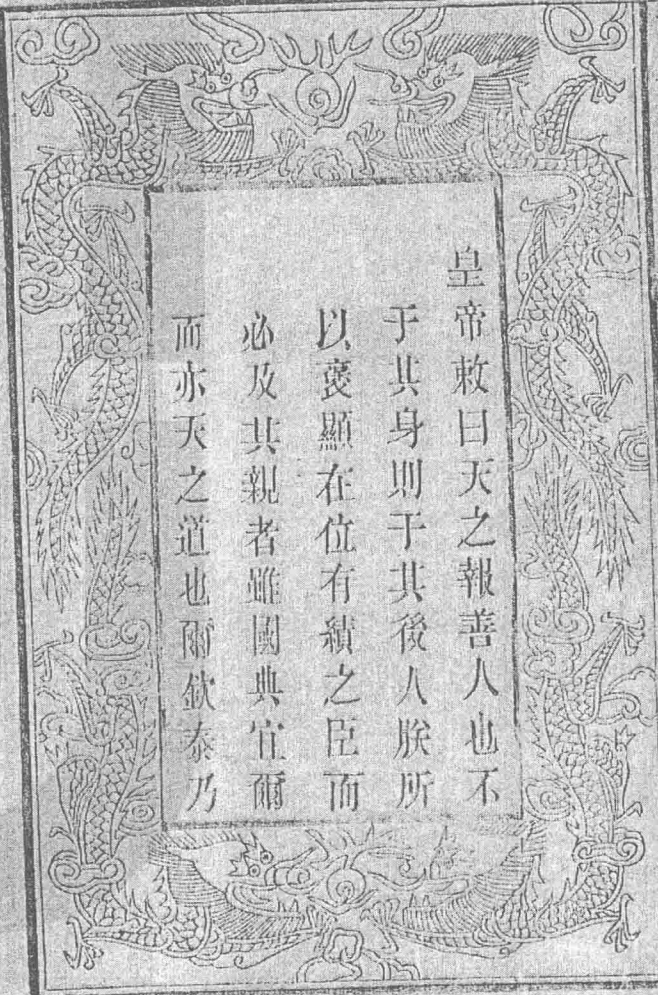 皇帝敕曰天之報善人也不
于其身則于其後人朕所
以褒顯在位有績之臣而
必及其親者雖國典宜爾
而亦天之道也爾欽泰乃